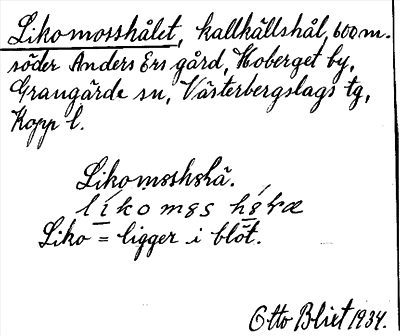 Likomosshålet, kallkällshål, 600 m.
söder Anders Ers gård, Hoberget by,
Grangärde sn, Västerbergslags tg,
Kopp l.
Likomsshskä.
líkomss
Liko = ligger i blöt.
Otto Blixt 1934.